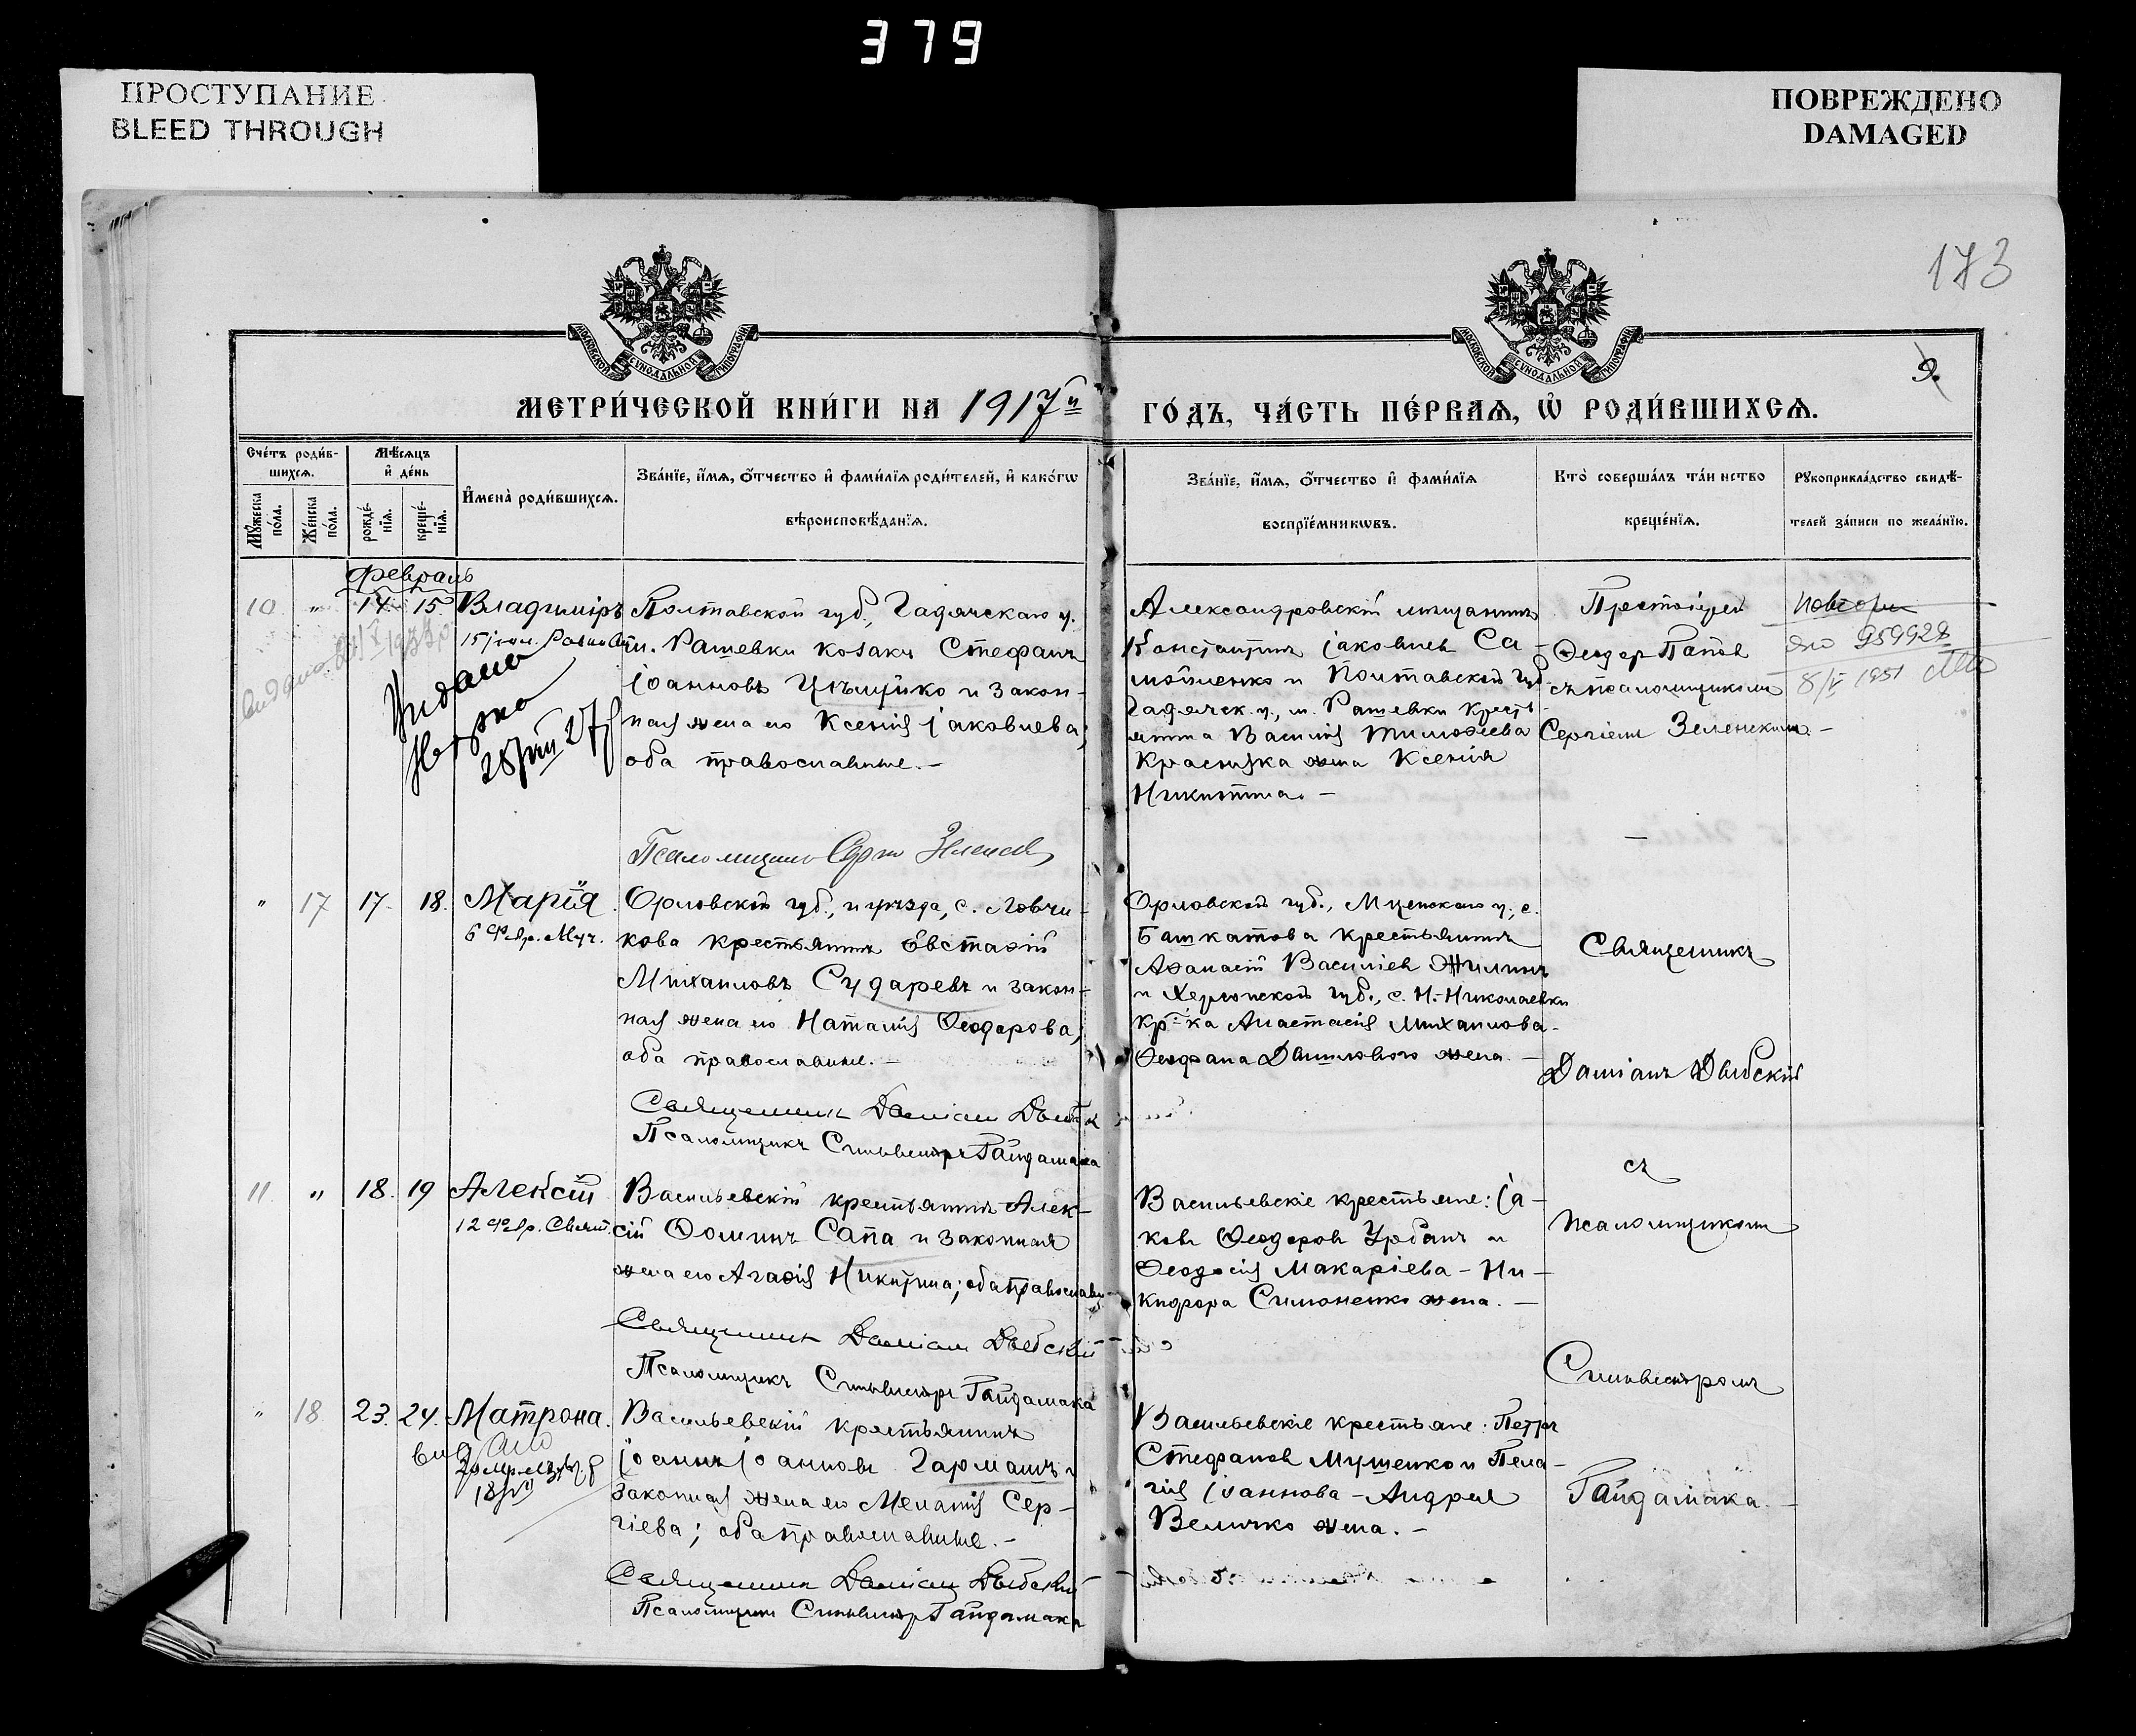 379
ПРОСТУПАНИЕ
BLEED THROUGH
ПОВРЕЖДЕНО
DAMAGED
173
9.
МОСКОВСКОЙ СѴНОДАЛЬНОЙ ТИПОГРАФІИ
МОСКОВСКОЙ СѴНОДАЛЬНОЙ ТИПОГРАФІИ
МЕТРИ́ЧЕСКОЙ КНИ́ГИ НА 1917й ГО́ДЪ, ЧА́СТЬ ПЕ́РВАѦ, Ѽ РОДИ́ВШИХСѦ.
Счéтъ роди́в-
шихсѧ.
Мꙋ́жеска
по́ла.
Же́нска
по́ла.
Мѣ́сѧцъ
и҆ де́нь
рожде́-
нїѧ.
креще́-
нїѧ.
И҆мена̀ роди́вшихсѧ.
Зва́нїе, и҆́мѧ, ѻ҆́тчество и҆ фами́лїѧ роди́телей, и҆ како́гѡ
вѣроисповѣ́данїѧ.
Зва́нїе, и҆́мѧ, ѻ҆́тчество и҆ фами́лїѧ
воспрїе́мникѡвъ.
Кто̀ соверша́лъ та́инство
креще́нїѧ.
Рꙋкоприкла́дство свидѣ́-
телей за́писи по жела́нїю.
Февраль
10 " 14 15 Владиміръ
15 іюл. Равноап.
Видано
28/VIII 27
Полтавской губ., Гадячскаго у.
м. Рашевки козакъ Стефанъ
Іоанновъ и закон-
ная жена его Ксенія Іаковлева;
оба православные. –
Псаломщикъ
Александровскій мещанинъ
Константинъ Іаковлевъ Са-
мойленко и Полтавской губ.
Гадячск. у., м. Рашевки кресть-
янина Василія Тимофеева
жена Ксенія
Никитина. –
Протоіерей
Ѳеодоръ Поповъ
съ псаломщикомъ
Сергіемъ Зеленскимъ. –
повторн
959928
8/V 1951
" 17 17. 18. Марія.
6 Фев. Муч.
Орловской губ., и уезда, с. Ловчи-
кова крестьянинъ Евстафій
Михаиловъ Сударевъ и закон-
ная жена его Наталія Ѳеодорова;
оба православные. –
Священникъ Даміанъ
Псаломщикъ Сильвестръ Гайдамака
Орловской губ., Мценскаго у., с.
Башкатова крестьянинъ
Аѳанасій Василіевъ Жилинъ
и Херсонской губ., с. Н.-Николаевки
кр-ка Анастасія Михаилова-
жена. –
Священникъ
Даміанъ Дыбскій
11. " 18. 19 Алексій
12 Февр. Свят.
Васильевскій крестьянинъ Алек-
сій Ѳоминъ Сапа и законная
жена его Агаѳія Никитина; оба православн.
Священникъ Даміанъ Дыбскій
Псаломщикъ Сильвестръ Гайдамака
Васильевскіе крестьяне: Іа-
ковъ Ѳеодоровъ Урбанъ и
Ѳеодосія Макаріева – Ни-
кифора Симоненко жена. –
съ
псаломщикомъ
Сильвестромъ
" 18 23. 24. Матрона.
Васильевскій крестьянинъ
Іоаннъ Іоанновъ Гармашъ и
законная жена его Меланія Сер-
гіева; оба православные. –
Священникъ Даміанъ Дыбскій
Псаломщикъ Сильвестръ Гайдамака
Васильевскіе крестьяне: Петръ
Стефановъ Мушенко и Пела-
гія Іоаннова – Андрея
Величко жена. –
Гайдамака. –